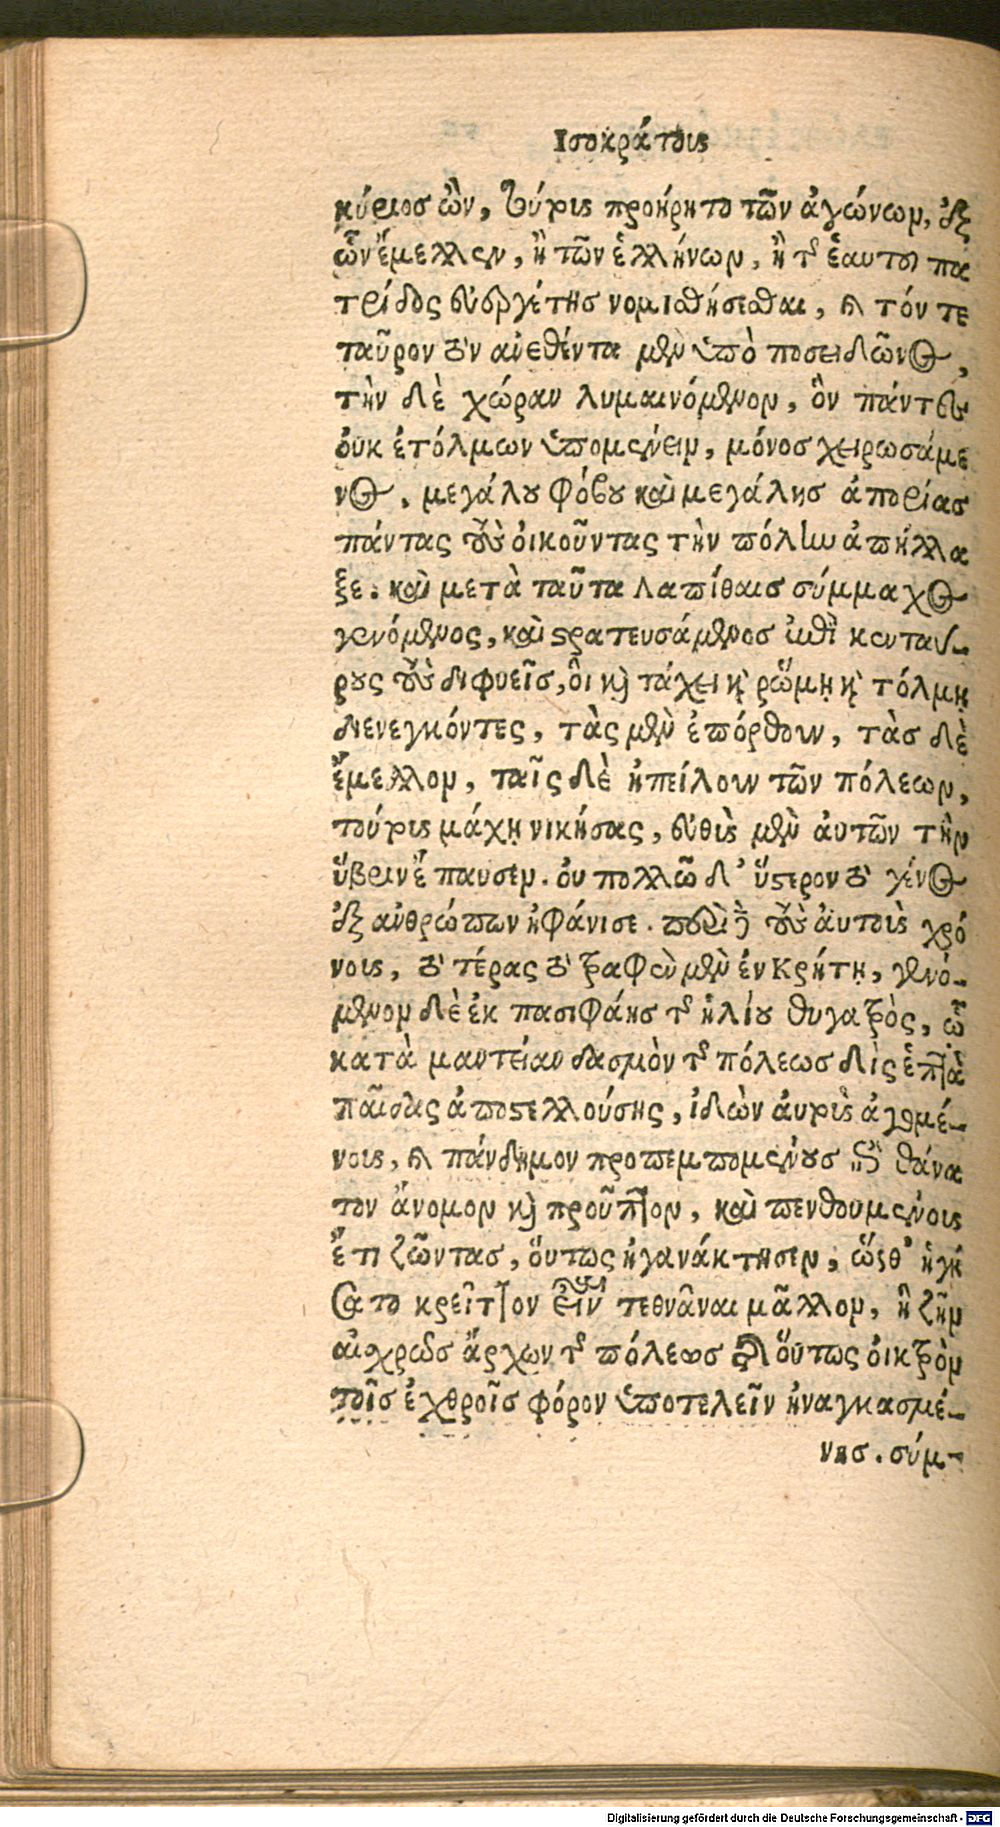 Ισοκράτους
κύριος ὢν, τούτους προῄρητο τῶν ἀγώνων, ἐξ
ὧν ἔμελλεν, ἢ τῶν ἑλλήνων, ἢ τῆς ἑαυτοῦ πα
τρίδος εὐεργέτης νομισθήσεσθαι, καὶ τόν τε
ταῦρον τὸν ἀνεθέντα μὲν ὑπὸ ποσειδῶνος,
τὴν δὲ χώραν λυμαινόμενον, ὃν πάντες
οὐκ ἐτόλμων ὑπομένειν, μόνος χειρωσάμε
νος, μεγάλου φόβου καὶ μεγάλης ἀπορίας
πάντας τοὺς οἰκοῦντας τὴν πόλιν ἀπήλλα
ξε. καὶ μετὰ ταῦτα Λαπίθαις σύμμαχος
γενόμενος, καὶ στρατευσάμενος ἐπὶ κενταύ-
ρους τοὺς διφυεῖς, οἳ καὶ τάχει καὶ ῥώμῃ καὶ τόλμῃ
διενεγκόντες, τὰς μὲν ἐπόρθουν, τὰς δὲ
ἔμελλον, ταῖς δὲ ἠπείλουν τῶν πόλεων,
τούτους μάχῃ νικήσας, εὐθὺς μὲν αὐτῶν τὴν
ὕβριν ἔπαυσεν. οὐ πολλῷ δ' ὕστερον τὸ γένος
ἐξ ἀνθρώπων ἠφάνισε. περὶ δὲ τοὺς αὐτοὺς χρό
νους, τὸ τέρας τὸ τραφὲν μὲν ἐν Κρήτῃ, γενό-
μενον δὲ ἐκ πασιφάης τῆς ἡλίου θυγατρὸς, ᾧ
κατὰ μαντείαν δασμὸν τῆς πόλεως δὶς ἑπτὰ
παῖδας ἀποστελλούσης, ἰδὼν αὐτοὺς ἀγομέ-
νους, καὶ πάνδημον προπεμπομένους ἐπὶ θάνα
τον ἄνομον καὶ προῦπτον, καὶ πενθουμένους
ἔτι ζῶντας, οὕτως ἠγανάκτησεν, ὥσθ' ἡγή
σατο κρεῖττον εἶναι τεθνᾶναι μᾶλλον, ἢ ζῆν
αἰσχρῶς ἄρχων τῆς πόλεως τῆς οὕτως οἰκτρὸν
τοῖς ἐχθροῖς φόρον ὑποτελεῖν ἠναγκασμέ-
νης. σύμ-
Digitalisierung gefördert durch die Deutsche Forschungsgemeinschaft - DFG